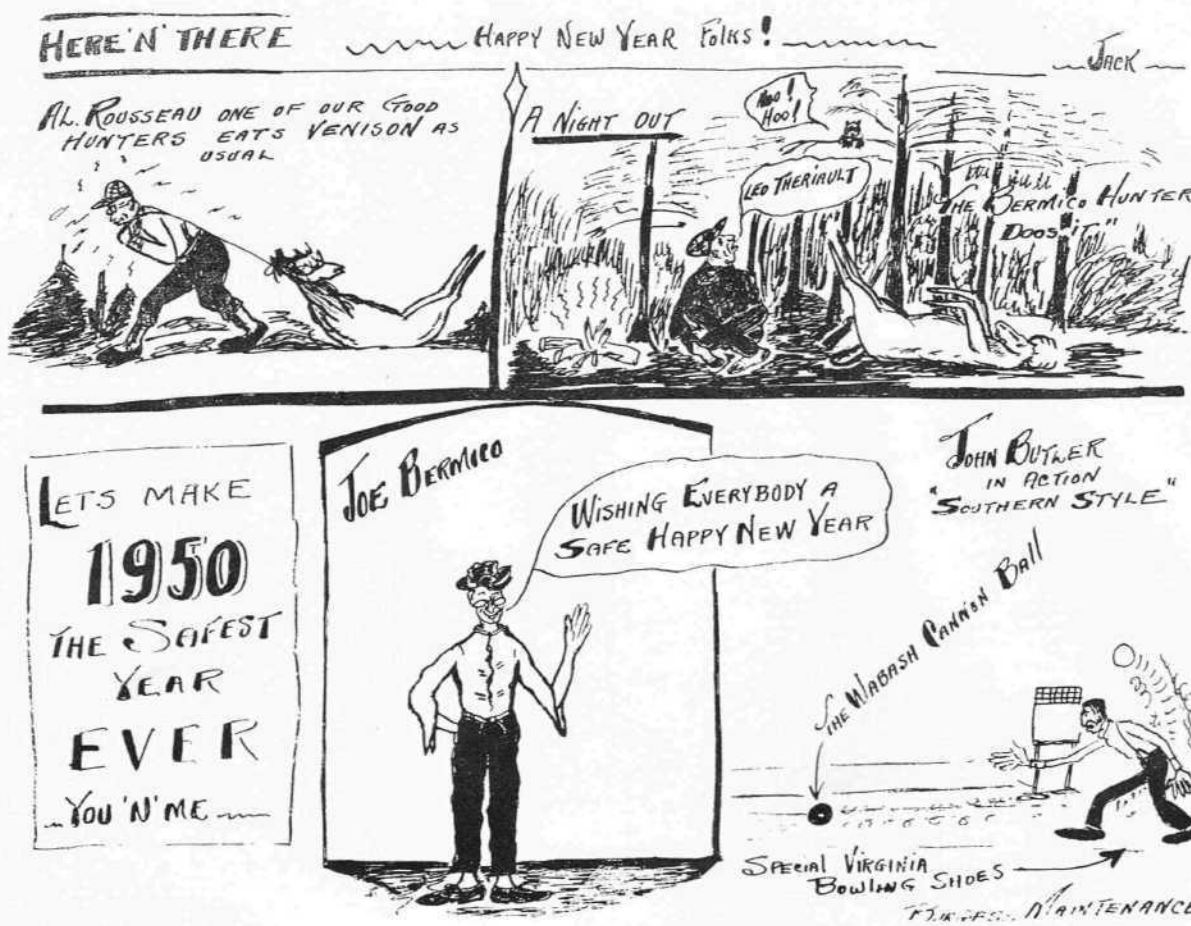 HERE 'N' THERE
HAPPY NEW YEAR FOLKS!
JACK
AL. ROUSSEAU ONE OF OUR GOOD
HUNTERS EATS VENISON AS
USUAL
A NIGHT OUT
HOO!
HOO!
LEO THERIAULT
"THE BERMICO HUNTER
DOOS IT"
LETS MAKE
1950
THE SAFEST
YEAR
EVER
YOU 'N' ME
JOE BERMICO
WISHING EVERYBODY A
SAFE HAPPY NEW YEAR
JOHN BUTLER
IN ACTION
"SOUTHERN STYLE"
THE WABASH CANNON BALL
SPECIAL VIRGINIA
BOWLING SHOES
MAINTENANCE